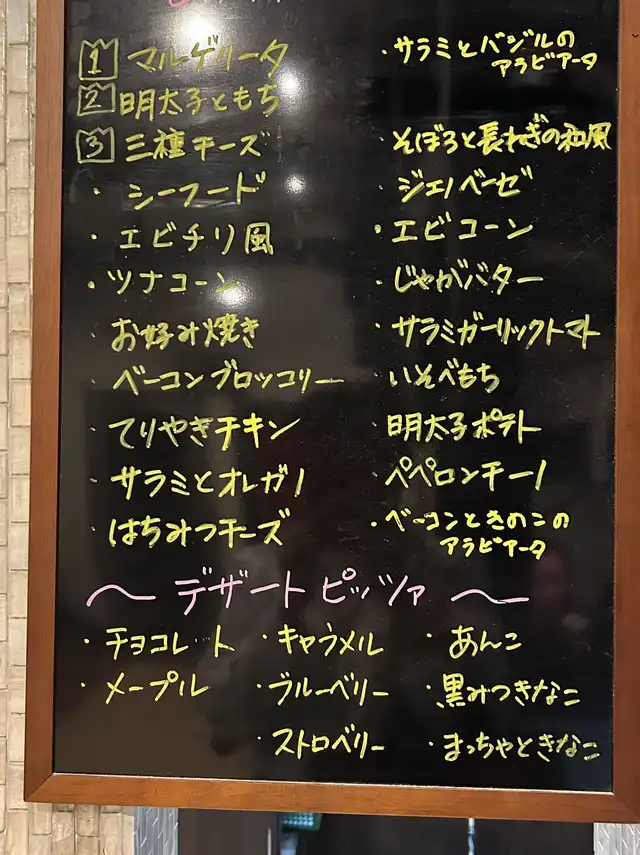 1 マルゲリータ
2 明太子ともち
3 三種チーズ
・シーフード
・エビチリ風
・ツナコーン
・お好み焼き
・ベーコンブロッコリー
・てりやきチキン
・サラミとオレガノ
・はちみつチーズ
・サラミとバジルの
アラビアータ
・そぼろと長ねぎの和風
・ジェノベーゼ
・エビコーン
・じゃがバター
・サラミガーリックトマト
・いそべもち
・明太子ポテト
・ペペロンチーノ
・ベーコンときのこの
アラビアータ
〜デザートピッツァ〜
・チョコレート ・キャラメル ・あんこ
・メープル ・ブルーベリー ・黒みつきなこ
・ストロベリー ・まっちゃときなこ